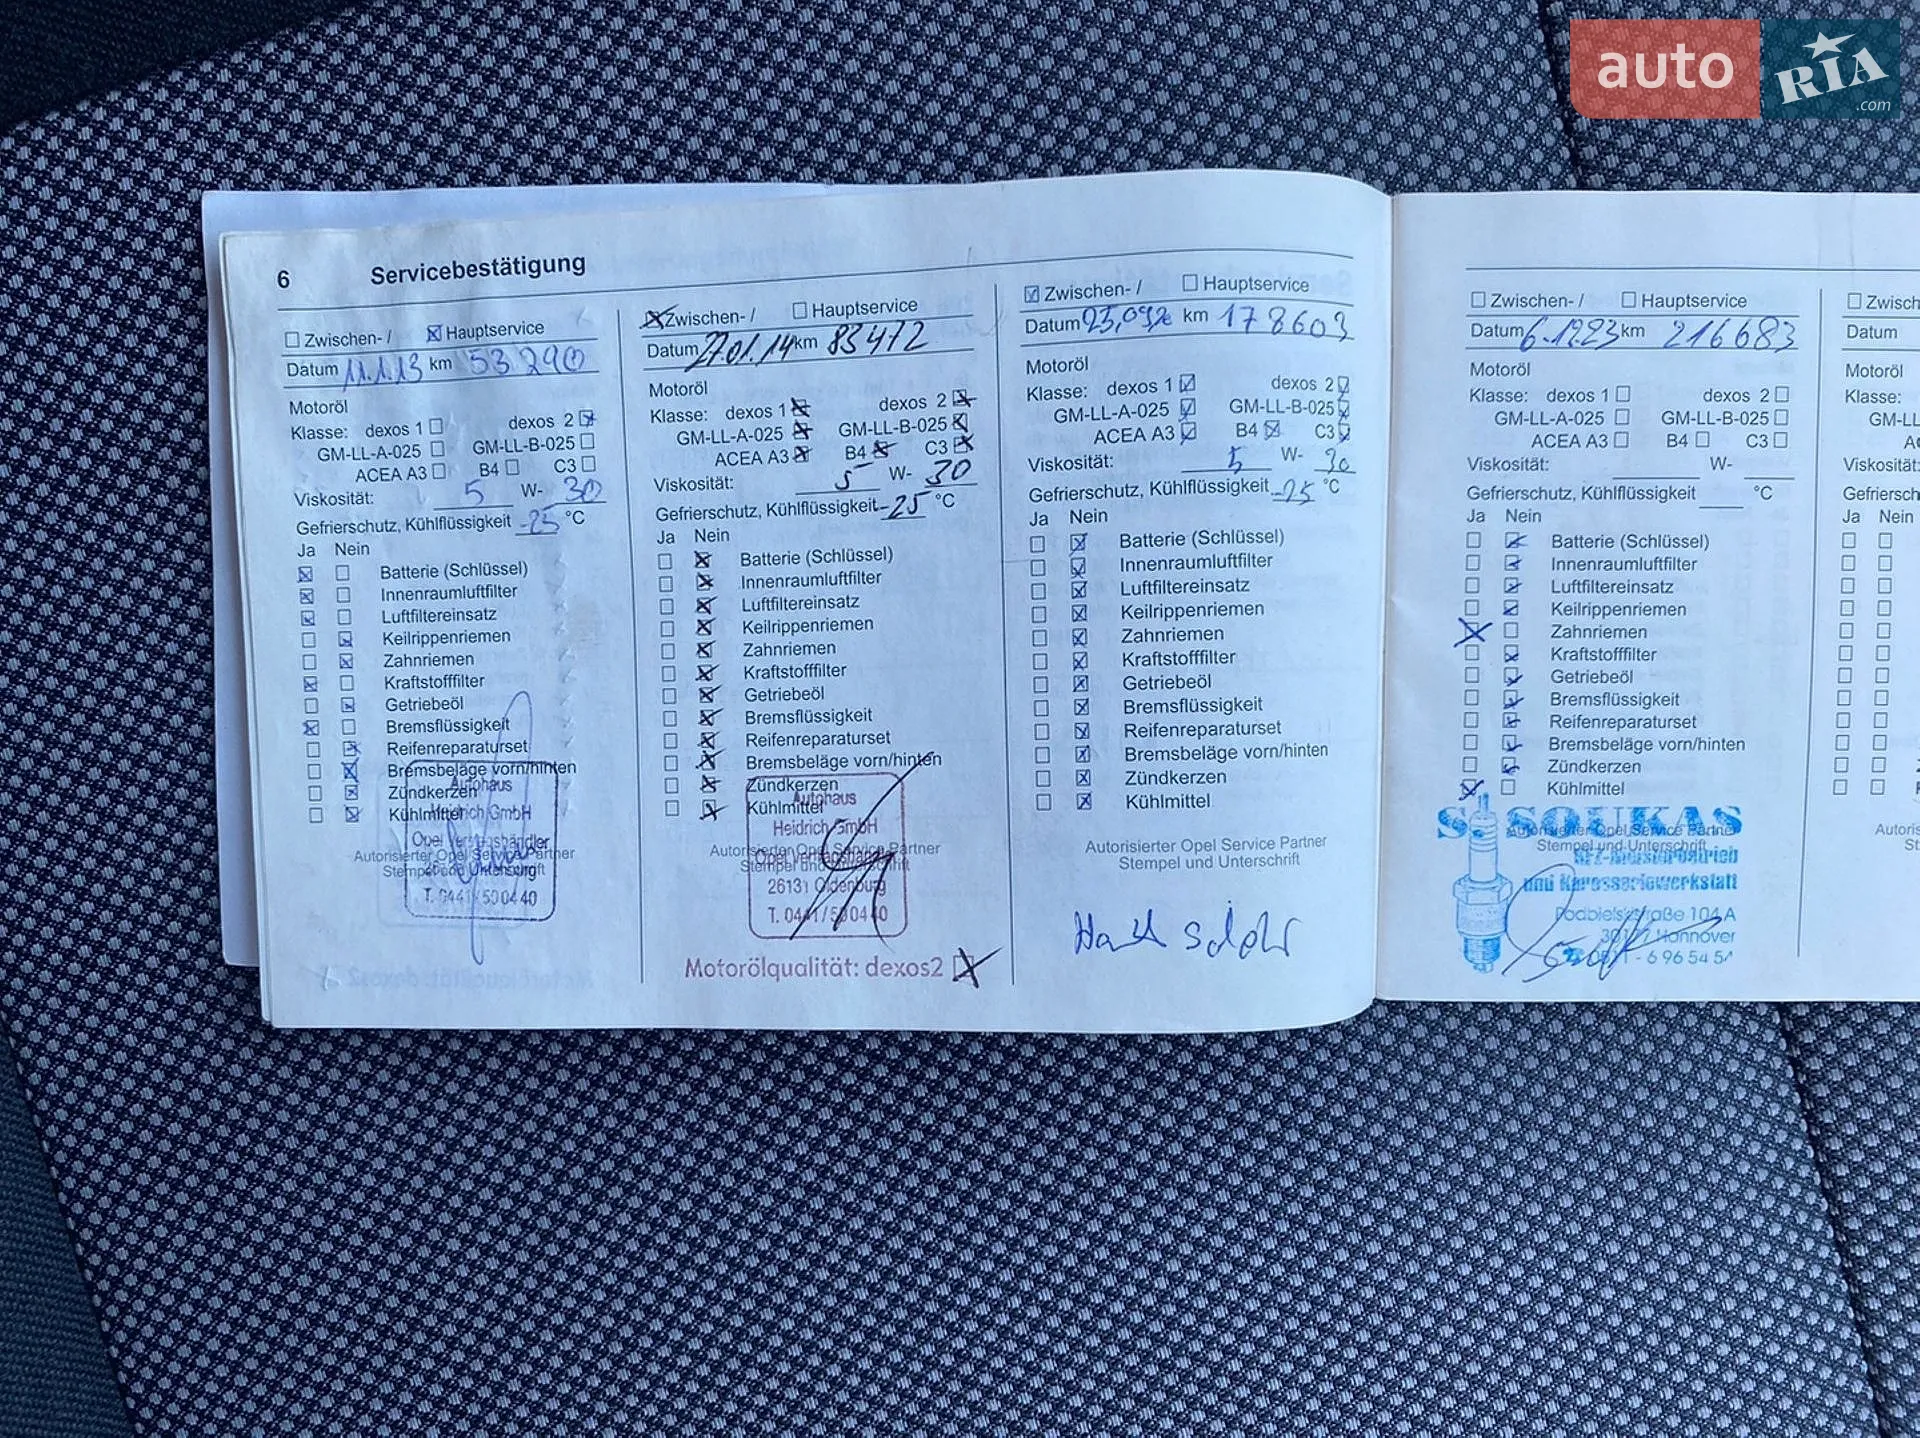 auto RIA .com
6 Servicebestätigung
Zwischen- / Hauptservice
Datum 11.1.13 km 53290
Motoröl
Klasse: dexos 1 dexos 2
GM-LL-A-025 GM-LL-B-025
ACEA A3 B4 C3
Viskosität: 5 W- 30
Gefrierschutz, Kühlflüssigkeit -25 °C
Ja Nein
Batterie (Schlüssel)
Innenraumluftfilter
Luftfiltereinsatz
Keilrippenriemen
Zahnriemen
Kraftstofffilter
Getriebeöl
Bremsflüssigkeit
Reifenreparaturset
Bremsbeläge vorn/hinten
Zündkerzen
Kühlmittel
Autohaus
Heidrich GmbH
Opel Vertragshändler
Autorisierter Opel Service Partner
Stempel und Unterschrift
T. 0441/500440
Zwischen- / Hauptservice
Datum 27.01.14 km 83472
Motoröl
Klasse: dexos 1 dexos 2
GM-LL-A-025 GM-LL-B-025
ACEA A3 B4 C3
Viskosität: 5 W- 30
Gefrierschutz, Kühlflüssigkeit -25 °C
Ja Nein
Batterie (Schlüssel)
Innenraumluftfilter
Luftfiltereinsatz
Keilrippenriemen
Zahnriemen
Kraftstofffilter
Getriebeöl
Bremsflüssigkeit
Reifenreparaturset
Bremsbeläge vorn/hinten
Zündkerzen
Kühlmittel
Autohaus
Heidrich GmbH
Autorisierter Opel Service Partner
Opel Vertragshändler
26131 Oldenburg
T. 0441/500440
Motorölqualität: dexos2
Zwischen- / Hauptservice
Datum km 178603
Motoröl
Klasse: dexos 1 dexos 2
GM-LL-A-025 GM-LL-B-025
ACEA A3 B4 C3
Viskosität: 5 W- 30
Gefrierschutz, Kühlflüssigkeit -25 °C
Ja Nein
Batterie (Schlüssel)
Innenraumluftfilter
Luftfiltereinsatz
Keilrippenriemen
Zahnriemen
Kraftstofffilter
Getriebeöl
Bremsflüssigkeit
Reifenreparaturset
Bremsbeläge vorn/hinten
Zündkerzen
Kühlmittel
Autorisierter Opel Service Partner
Stempel und Unterschrift
Zwischen- / Hauptservice
Datum 6.12.23 km 216683
Motoröl
Klasse: dexos 1 dexos 2
GM-LL-A-025 GM-LL-B-025
ACEA A3 B4 C3
Viskosität: W-
Gefrierschutz, Kühlflüssigkeit °C
Ja Nein
Batterie (Schlüssel)
Innenraumluftfilter
Luftfiltereinsatz
Keilrippenriemen
Zahnriemen
Kraftstofffilter
Getriebeöl
Bremsflüssigkeit
Reifenreparaturset
Bremsbeläge vorn/hinten
Zündkerzen
Kühlmittel
SOUKAS
Autorisierter Opel Service Partner
Stempel und Unterschrift
KFZ-Meisterbetrieb
und Karosseriewerkstatt
Podbielskistraße 104 A
30177 Hannover
0511 - 6 96 54 54
Zwisch
Datum
Motoröl
Klasse:
GM-LL
AC
Viskosität:
Gefriersch
Ja Nein
Autoris
St